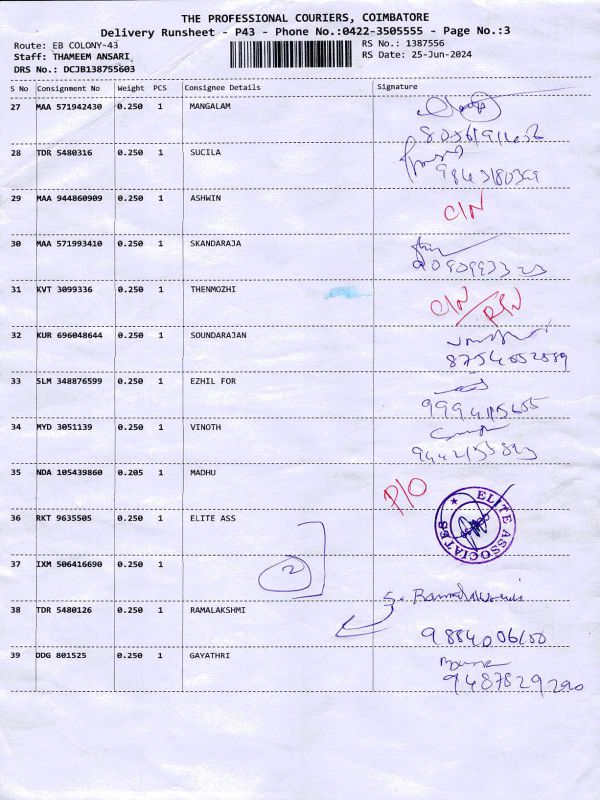 THE PROFESSIONAL COURIERS, COIMBATORE
Delivery Runsheet - P43 - Phone No.:0422-3505555 - Page No.:3
Route: EB COLONY-43 RS No.: 1387556
Staff: THAMEEM ANSARI RS Date: 25-Jun-2024
DRS No.: DCJB138755603
S No Consignment No Weight PCS Consignee Details Signature
27 MAA 571942430 0.250 1 MANGALAM
28 TDR 5480316 0.250 1 SUCILA
9843180369
29 MAA 944860909 0.250 1 ASHWIN C/N
30 MAA 571993410 0.250 1 SKANDARAJA
31 KVT 3099336 0.250 1 THENMOZHI C/N
32 KUR 696048644 0.250 1 SOUNDARAJAN
8754002589
33 SLM 348876599 0.250 1 EZHIL FOR
34 MYD 3051139 0.250 1 VINOTH
35 NDA 105439860 0.205 1 MADHU P/O
36 RKT 9635505 0.250 1 ELITE ASS ELITE ASSOCIATES
37 IXM 506416690 0.250 1 2
38 TDR 5480126 0.250 1 RAMALAKSHMI
9884006100
39 DDG 801525 0.250 1 GAYATHRI
9487829290